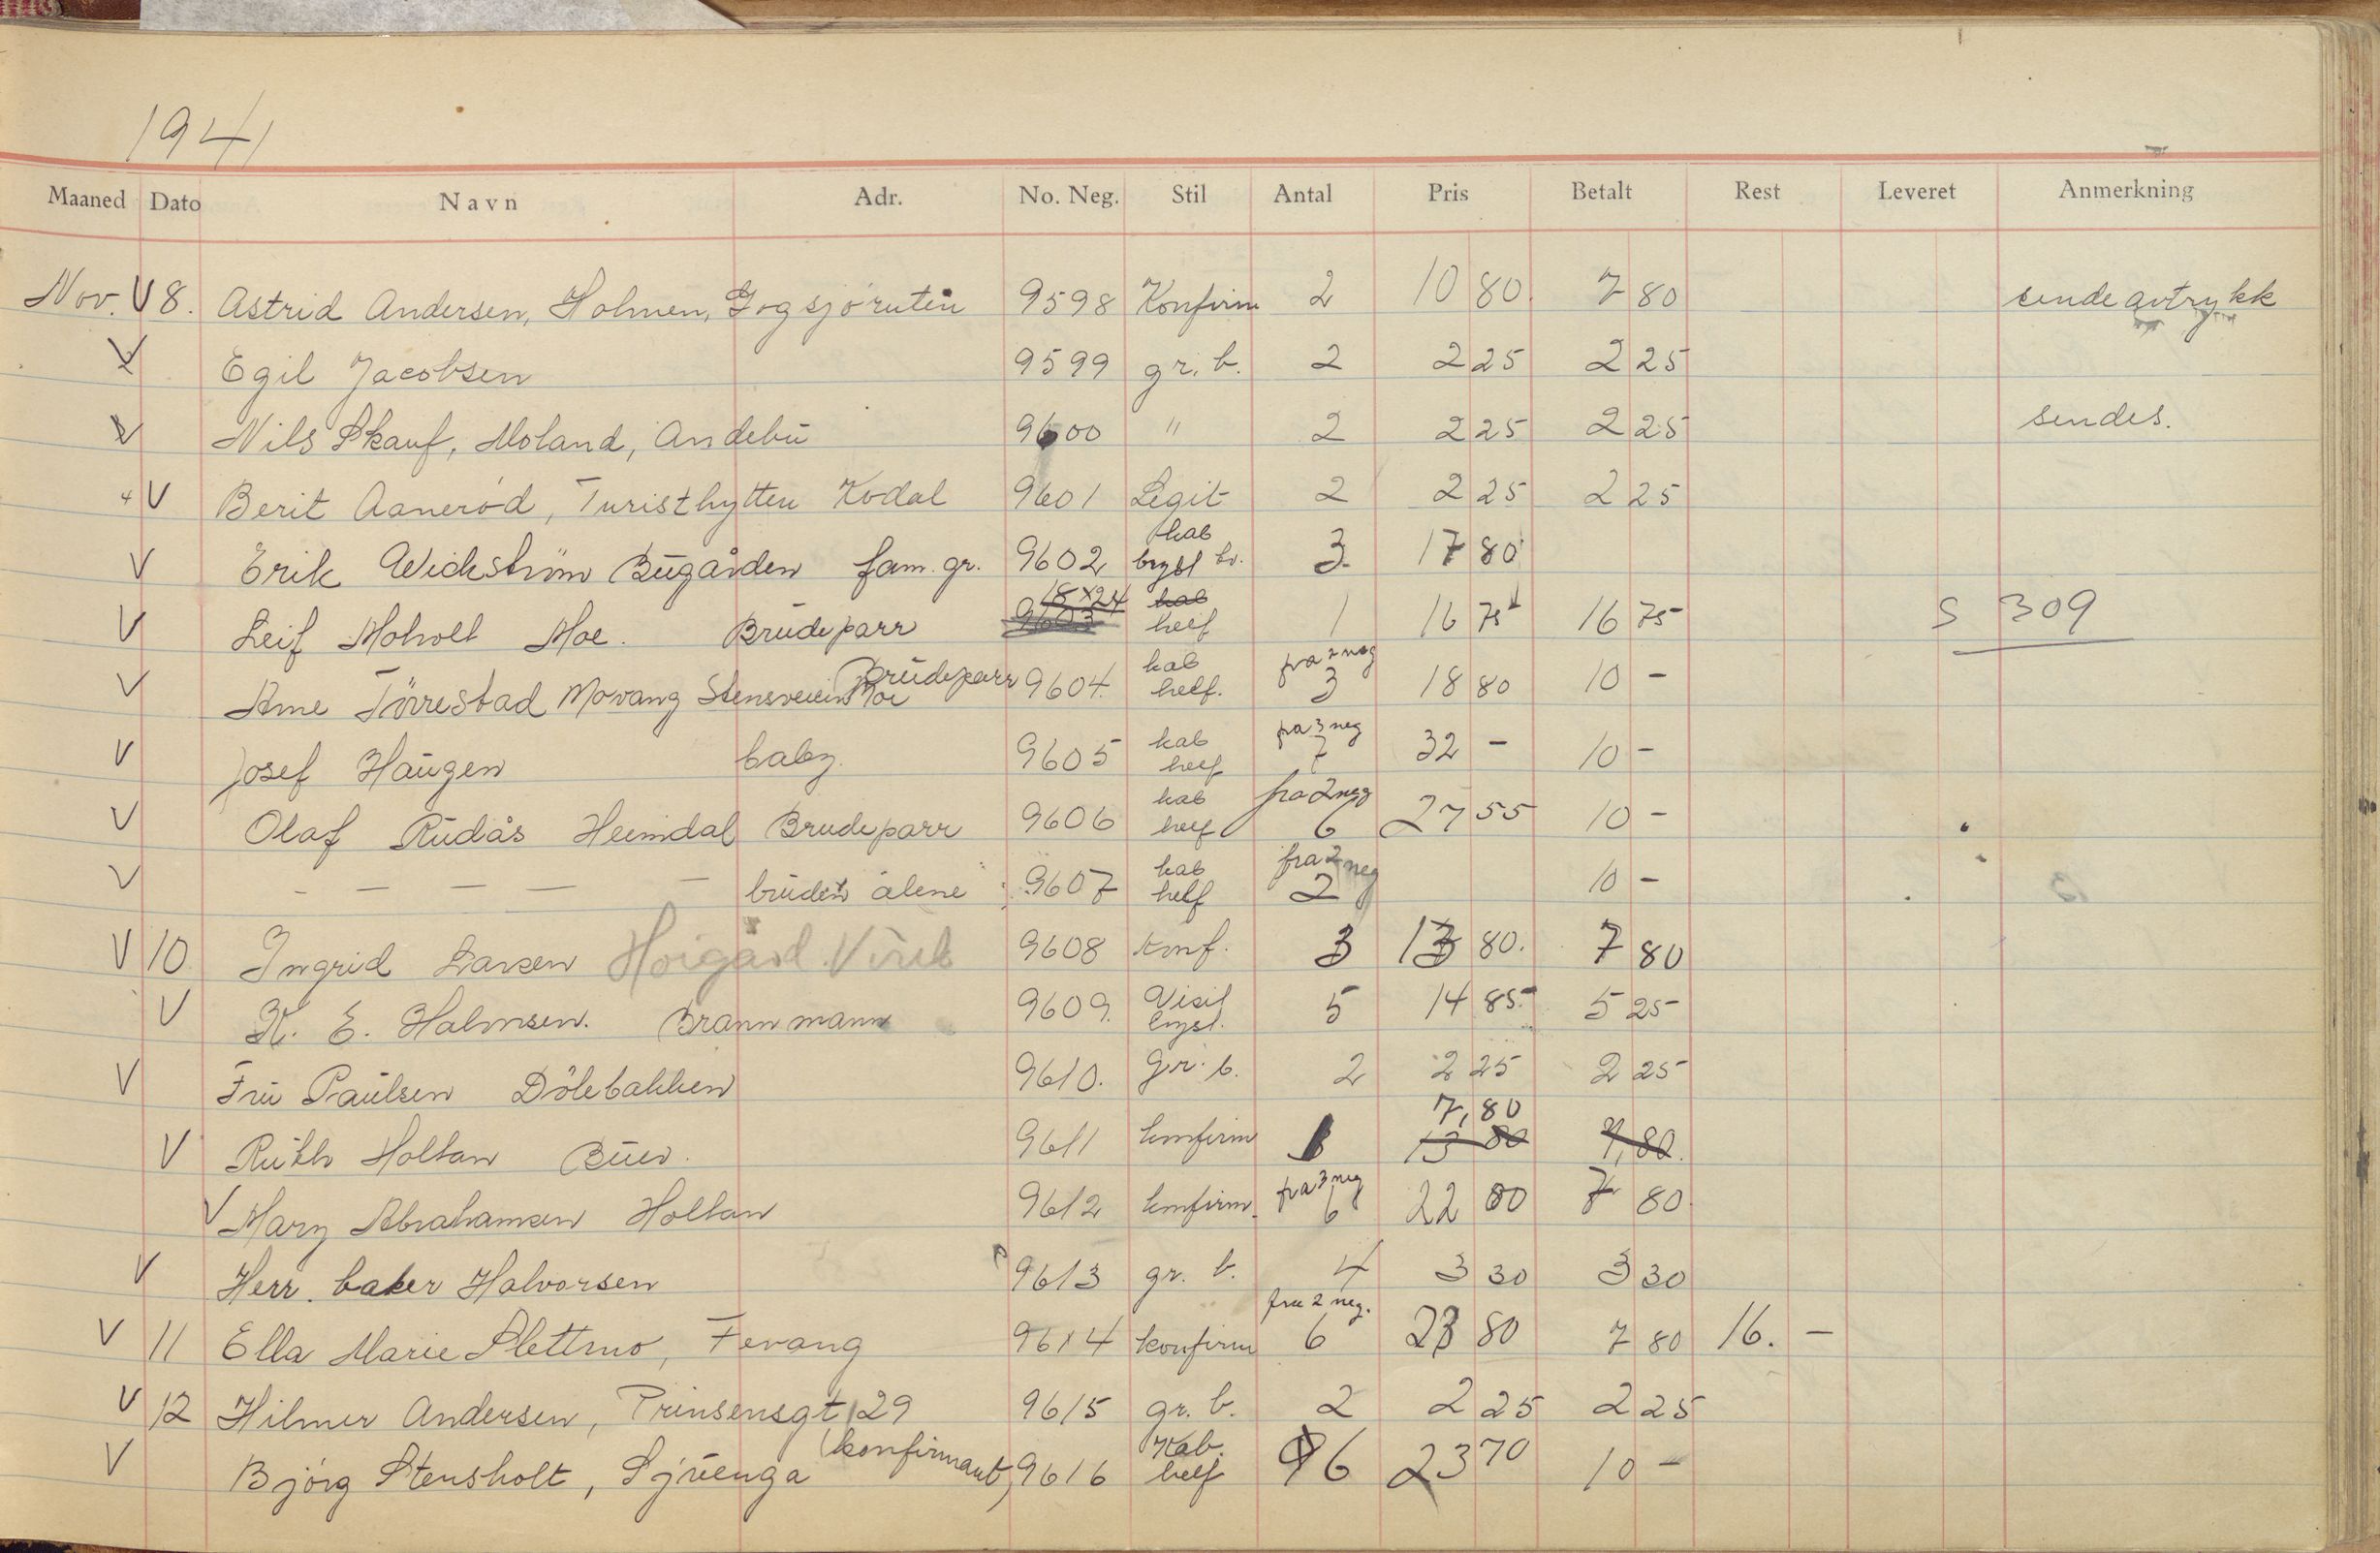 1941
Maaned Dato Navn Adr. No. Neg. Stil Antal Pris Betalt Rest Leveret Anmerkning
Nov. V 8. Astrid Andersen, Holmen, Gogsjøruten 9598 Konfirm 2 10 80. 7 80 sende avtrykk
V Egil Jacobsen 9599 gr. b. 2 2 25 2 25
V Nils Skauf, Moland, Andebu 9600 " 2 2 25 2 25 sendes.
V Berit Aanerød, Turisthytten Kodal 9601 Legit 2 2 25 2 25
kab
V Erik Wickstrøm Bugården fam. gr. 9602 bryst br. 3 17 80
18x24 kab
V Leif Moholt Moe. Brudeparr 9603 helf 1 16 75 16 75 S 309
Brudeparr kab fra 2 neg
V Arne Törrestad Movang Moe 9604 helf. 3 18 80 10 -
kab fra 3 neg
V Josef Haugen baby. 9605 helf 7 32 - 10 -
kab fra 2 neg
V Olaf Rudås Heimdal Brudeparr 9606 helf 6 27 55 10 -
kab fra 2 neg
V - - - - - bruden alene 9607 helf 2 10 -
V 10 Ingrid Larsen Hoigård 9608 konf. 3 13 80. 7 80
V K. E. Halmsen. Brannmann 9609. Visit bryst. 5 14 85 5 25
V Fru Paulsen Dölebakken 9610. gr. b. 2 2 25 2 25
7,80
V Ruth Holtan Buer. 9611 konfirm 13 80 7,80.
fra 3 neg
V Mary Abrahamsen Holtan 9612 konfirm. 6 22 80 7 80.
V Herr. baker Halvorsen 9613 gr. b. 4 3 30 3 30
fra 2 neg.
V 11 Ella Marie Slettmo, Fevang 9614 konfirm 6 23 80 7 80 16. -
V 12 Hilmer Andersen, Prinsensgt 29 9615 gr. b. 2 2 25 2 25
(konfirmant) Kab.
V Bjørg Stensholt, Sjuenga 9616 helf 6 23 70 10 -